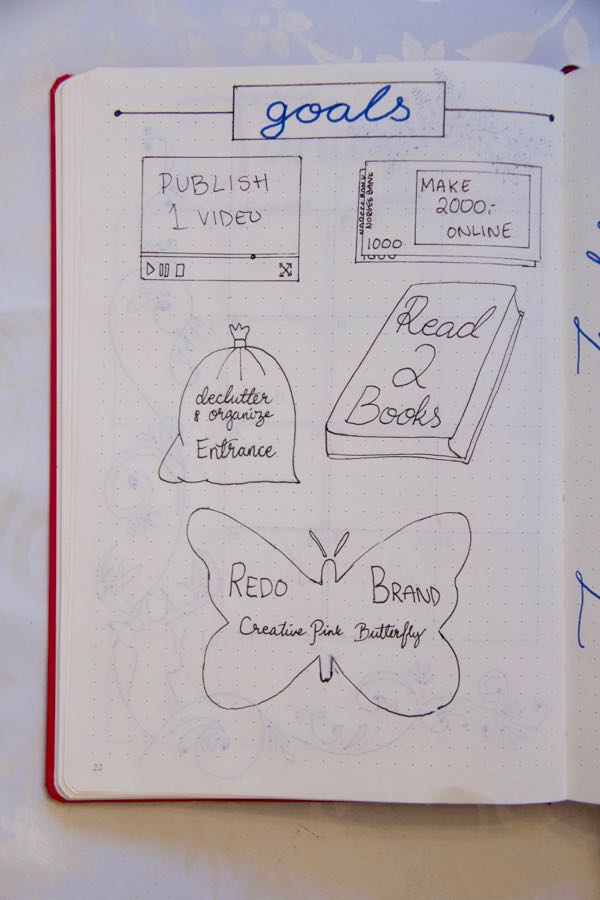 goals
PUBLISH
1 VIDEO
NORGES BANK
NORGES BANK
1000
1000
MAKE
2000,-
ONLINE
Read
2
Books
declutter
& organize
Entrance
REDO BRAND
Creative Pink Butterfly
22